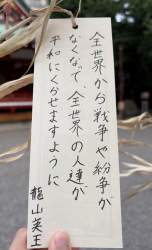 全世界から戦争や紛争が
なくなって全世界の人達が
平和にくらせますように
龍山美王